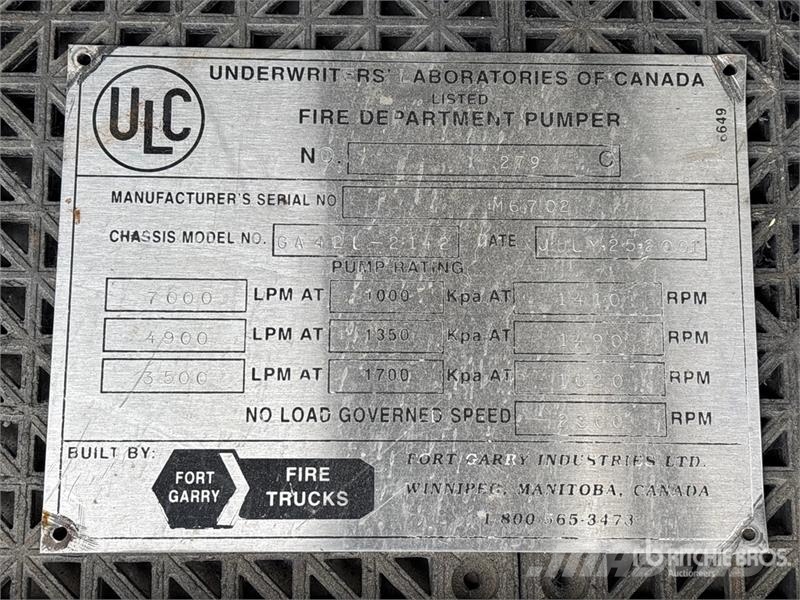 ULC
UNDERWRITERS' LABORATORIES OF CANADA
LISTED
FIRE DEPARTMENT PUMPER
6649
NO. 279 C
MANUFACTURER'S SERIAL NO M6702
CHASSIS MODEL NO. DATE JULY 25 2001
PUMP RATING
7000 LPM AT 1000 Kpa AT 1410 RPM
4900 LPM AT 1350 Kpa AT 1490 RPM
3500 LPM AT 1700 Kpa AT 1620 RPM
NO LOAD GOVERNED SPEED 2300 RPM
BUILT BY:
FORT GARRY
FIRE TRUCKS
FORT GARRY INDUSTRIES LTD.
WINNIPEG, MANITOBA, CANADA
1 800 565-3473
RITCHIE BROS.
Auctioneers